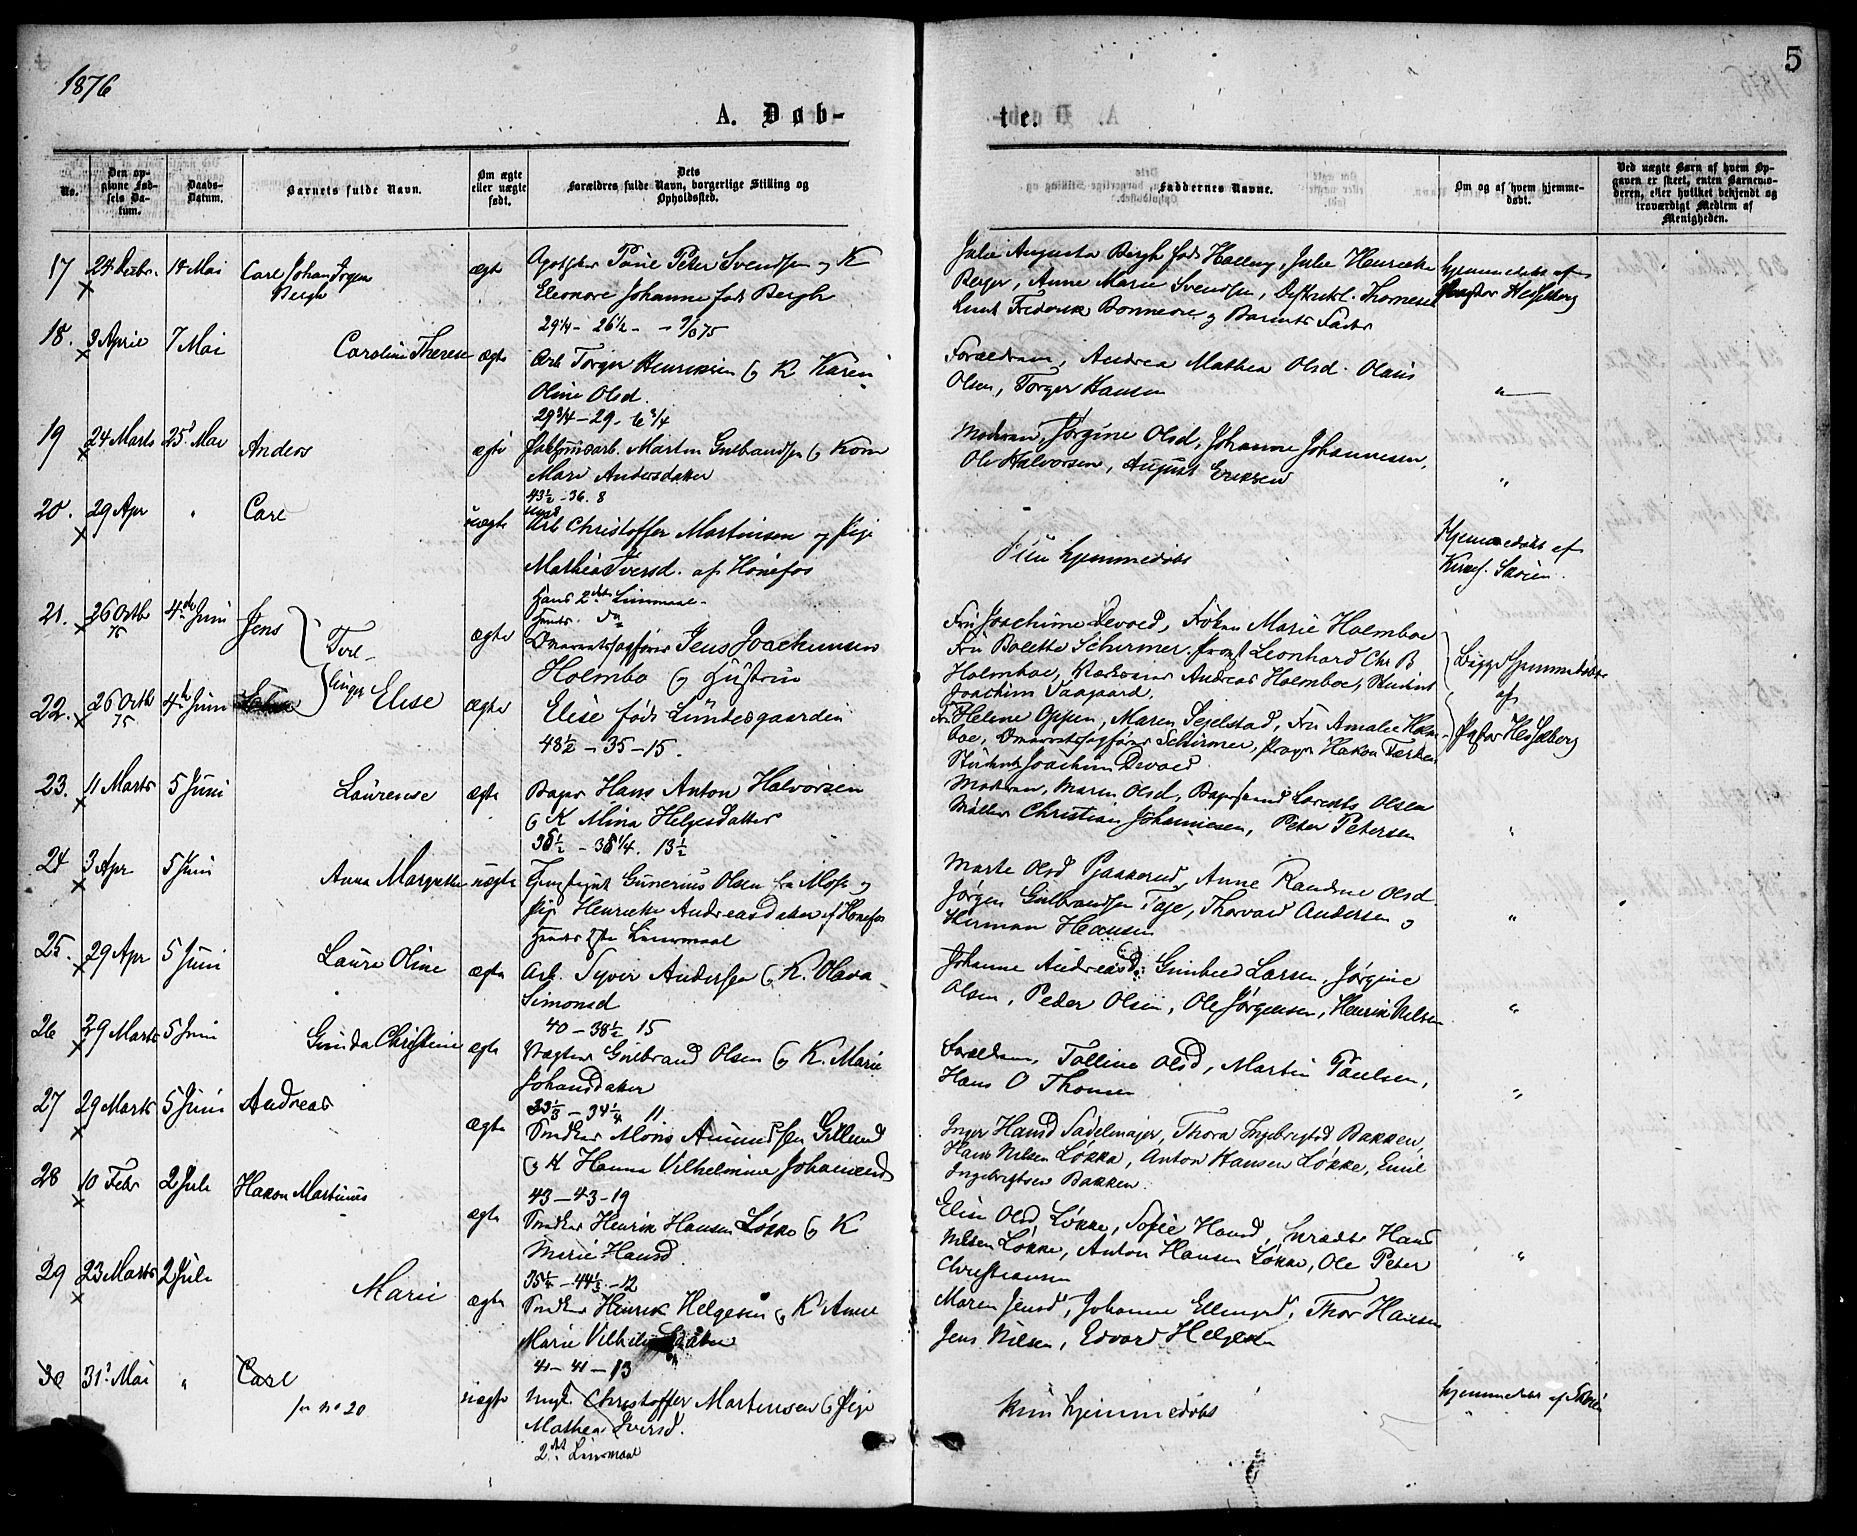 1876
5
A. Døb-
te.
No.
Den op-
givne Fød-
sels Da-
tum.
Daabs-
Datum.
Barnets fulde Navn.
Om ægte
eller uægte
født.
Dets
Forældres fulde Navn, borgerlige Stilling og
Opholdssted.
Faddernes Navne.
Om og af hvem hjemme-
døbt.
Ved uægte Børn af hvem Op-
gaven er skeet, enten Barnemo-
deren, eller hvilket bekjendt og
troværdigt Medlem af
Menigheden.
17 14 Mai Carl Johan
Bergh
ægte
Peter Svendsen og K
Eleonore Johanne født Bergh
29¼ - 26½
Julie Augusta Bergh født Julie Henrikke
Berger, Anne Marie Svendsen, Distriktl. Thomesen
Knut Frederik Bonnevie og Barnets Fader
hjemmedøbt af
Pastor Hesselberg
18. 3 April 7 Mai Caroline Therese ægte
Arb Torger Henriksen og K Karen
Oline Olsd.
29¾ - 29 - 6¾
Forældrene, Andrea Mathea Olsd. Olaus
Olsen, Torger Hansen
"
19 24 Marts 25 Mai Anders ægte
Martin Gulbrandsen og Kone
Mari Andersdatter
43½ - 36. 8
Moderen, Jørgine Olsd, Johanne Johannesen,
Ole Halvorsen, August Eriksen
"
20. 29 Apr " Carl uægte
Ungk
Arb Christoffer Martinsen og Pige
Mathea Iversd. af Hønefos
Hans 2det Leiermaal
Hendes do
Kun hjemmedøbt
Hjemmedøbt af
21. 26 Octb 75 4de Juni Jens
Tvil-
linger
ægte
Overretssagfører Jens Joachimsen
Holmbo og Hustru
Fru Joachime Devold, Frøken Marie Holmboe
Fru Bolette Schirmer, Provst Leonhard Chr B
Holmboe, Andreas Holmboe, Student
Joachim Vaagaard.
Begge hjemmedøbte
af
Pastor Hesselberg
22. 26 Octb 75 4de Juni Elise ægte
Elise født Lundesgaarden
48½ - 35 - 15.
Fru Helene Oppen, Maren Sejelstad, Fru Amalie Holm-
boe, Overretssagfører Schirmer, Hakon
Student Joachim Devold.
23. 11 Marts 5 Juni Laurense ægte
Bager Hans Anton Halvorsen
og K Mina Helgesdatter
13½
Moderen, Maren Olsd, Lorents Olsen
Møller Christian Johannesen, Peter Petersen
"
24 3 Apr 5 Juni Anna Margrethe uægte
Gunerius Olsen fra Moss og
Pige Henrikke Andreasdatter af Hønefos
Hendes Leiermaal
Marte Olsd Anne Randine Olsd
Jørgen Gulbrandsen Thorvald Andersen og
Herman Hansen
"
25. 29 Apr 5 Juni Laura Oline ægte
Arb. Syver Andersen og K. Olava
Simonsd
40 - 38½ 15
Johanne Andreasd. Gunhild Larsen, Jørgine
Olsen, Peder Olsen, Ole Jørgensen, Henrik Nilsen
"
26 29 Marts 5 Juni Gunda Christine ægte
Vægter Gulbrand Olsen og K. Marie
Johansdatter
34¼ 11
Forældrene, Tolline Olsd, Martin Paulsen,
Hans O Thomesen
"
27 29 Marts 5 Juni Andreas ægte
Snedker Mons Amundsen
og K Hanna Vilhelmine Johannesd
43 - 43 - 19
Inger Hansd Sadelmager, Thora Ingebrigtsd Bakken,
Hans Nilsen Løkka, Anton Hansen Løkke, Emil
Ingebrigtsen Bakken.
28 10 Febr 2 Juli Hakon Martinius ægte
Snedker Henrik Hansen Løkke og K
Marie Hansd
- 44½ - 12
Elise Olsd Løkke, Sofie Hansd, Hans
Nilsen Løkke, Anton Hansen Løkke, Ole Peter
Christiansen
"
29 23 Marts 2 Juli Marie ægte
Snedker Henrik Helgesen og K Anne
Marie
41 - 41 - 13
Maren Jensd, Johanne Ellingsd, Thor Hansen
Jens Nilsen, Edvard Helgesen
30 31 Mai " Carl uægte
se no 20
Ungk. Christoffer Martinsen og Pige
Mathea Iversd.
2det Leiermaal
Kun hjemmedøbt
hjemmedøbt af